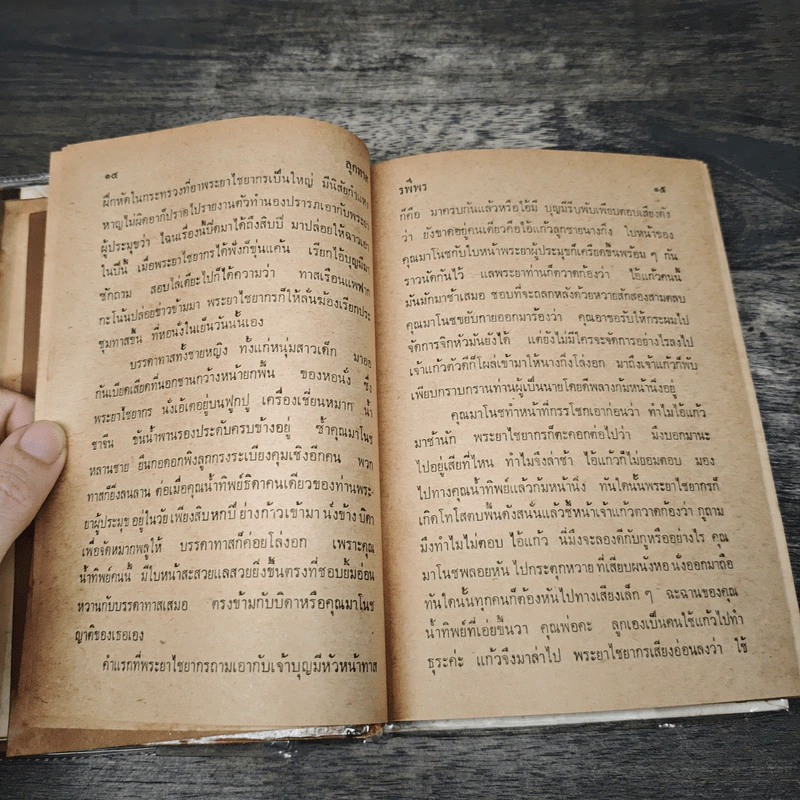 ๑๔ ลูกทาส
ฝึกหัดในกระทรวงที่อาพระยาไชยากรเป็นใหญ่ มีนิสัยกำแหง
หาญไม่ผิดอาก็ปราดไปรายงานตัวทำนองปรารภเอากับพระยา
ผู้ประมุขว่า ไฉนเรื่องนี้ปิดมาได้ถึงสิบปี มาปล่อยให้ฉาวเอา
ในปีนี้ เมื่อพระยาไชยากรได้ฟังก็ขุ่นแค้น เรียกไอ้บุญมีมา
ซักถาม สอบไล่เดี๋ยะไปก็ได้ความว่า ทาสเรือนแพฟาก
กะโน้นปล่อยข่าวข้ามมา พระยาไชยากรก็ให้ลั่นฆ้องเรียกประ
ชุมทาสขึ้น ที่หอนั่งในเย็นวันนั้นเอง
บรรดาทาสทั้งชายหญิง ทั้งแก่หนุ่มสาวเด็ก มาออ
กันเบียดเสียดที่นอกชานกว้างหน้ายกพื้น ของหอนั่ง ซึ่ง
พระยาไชยากร นั่งเอ้เตอยู่บนฟูกปู เครื่องเชี่ยนหมาก น้ำ
ชาจีน ขันน้ำพานรองประดับครบข้างอยู่ ซ้ำคุณมาโนช
หลานชาย ยืนกอดอกพิงลูกกรงระเบียงคุมเชิงอีกคน พวก
ทาสก็ยิ่งลนลาน ต่อเมื่อคุณน้ำทิพย์ธิดาคนเดียวของท่านพระ-
ยาผู้ประมุข อยู่ในวัยเพียงสิบหกปี ย่างก้าวเข้ามา นั่งข้าง บิดา
เพื่อจัดหมากพลูให้ บรรดาทาสก็ค่อยโล่งอก เพราะคุณ
น้ำทิพย์คนนี้ มีใบหน้าสะสวยแลสวยยิ่งขึ้นตรงที่ชอบยิ้มอ่อน
หวานกับบรรดาทาสเสมอ ตรงข้ามกับบิดาหรือคุณมาโนช
ญาติของเธอเอง
คำแรกที่พระยาไชยากรถามเอากับเจ้าบุญมีหัวหน้าทาส
รพีพร ๑๕
ก็คือ มาครบกันแล้วหรือไอ้มี บุญมีรีบพับเพียบตอบเสียงดัง
ว่า ยังขาดอยู่คนเดียวคือไอ้แก้วลูกชายนางกิ่ง ใบหน้าของ
คุณมาโนชกับใบหน้าพระยาผู้ประมุขก็เครียดขึ้นพร้อม ๆ กัน
ราวนัดกันไว้ แลพระยาท่านก็ตวาดก้องว่า ไอ้แก้วคนนี้
มันมักมาช้าเสมอ ชอบที่จะถลกหลังด้วยหวายสักสองสามตลบ
คุณมาโนชขยับกายออกมาร้องว่า คุณอาขอรับให้กระผมไป
จัดการจิกหัวมันยังได้ แต่ยังไม่มีใครจะจัดการอย่างไรลงไป
เจ้าแก้วตัวดีก็โผล่เข้ามาให้นางกิ่งโล่งอก มาถึงเจ้าแก้วก็พับ
เพียบกราบกรานท่านผู้เป็นนายโดยดีพลางก้มหน้านิ่งอยู่
คุณมาโนชทำหน้าที่กรรโชกเอาก่อนว่า ทำไมไอ้แก้ว
มาช้านัก พระยาไชยากรก็ตะคอกต่อไปว่า มึงบอกมานะ
ไปอยู่เสียที่ไหน ทำไมจึงล่าช้า ไอ้แก้วก็ไม่ยอมตอบ มอง
ไปทางคุณน้ำทิพย์แล้วก้มหน้านิ่ง ทันใดนั้นพระยาไชยากรก็
เกิดโทโสตบพื้นดังสนั่นแล้วชี้หน้าเจ้าแก้วตวาดก้องว่า กูถาม
มึงทำไมไม่ตอบ ไอ้แก้ว นี่มึงจะลองดีกับกูหรืออย่างไร คุณ
มาโนชพลอยหุน ไปกระตุกหวาย ที่เสียบผนังหอ นั่งออกมาถือ
ทันใดนั้นทุกคนก็ต้องหันไปทางเสียงเล็ก ๆ ฉะฉานของคุณ
น้ำทิพย์ที่เอ่ยขึ้นวา คุณพ่อคะ ลูกเองเป็นคนใช้แก้วไปทำ
ธุระค่ะ แก้วจึงมาล่าไป พระยาไชยากรเสียงอ่อนลงว่า ใช้